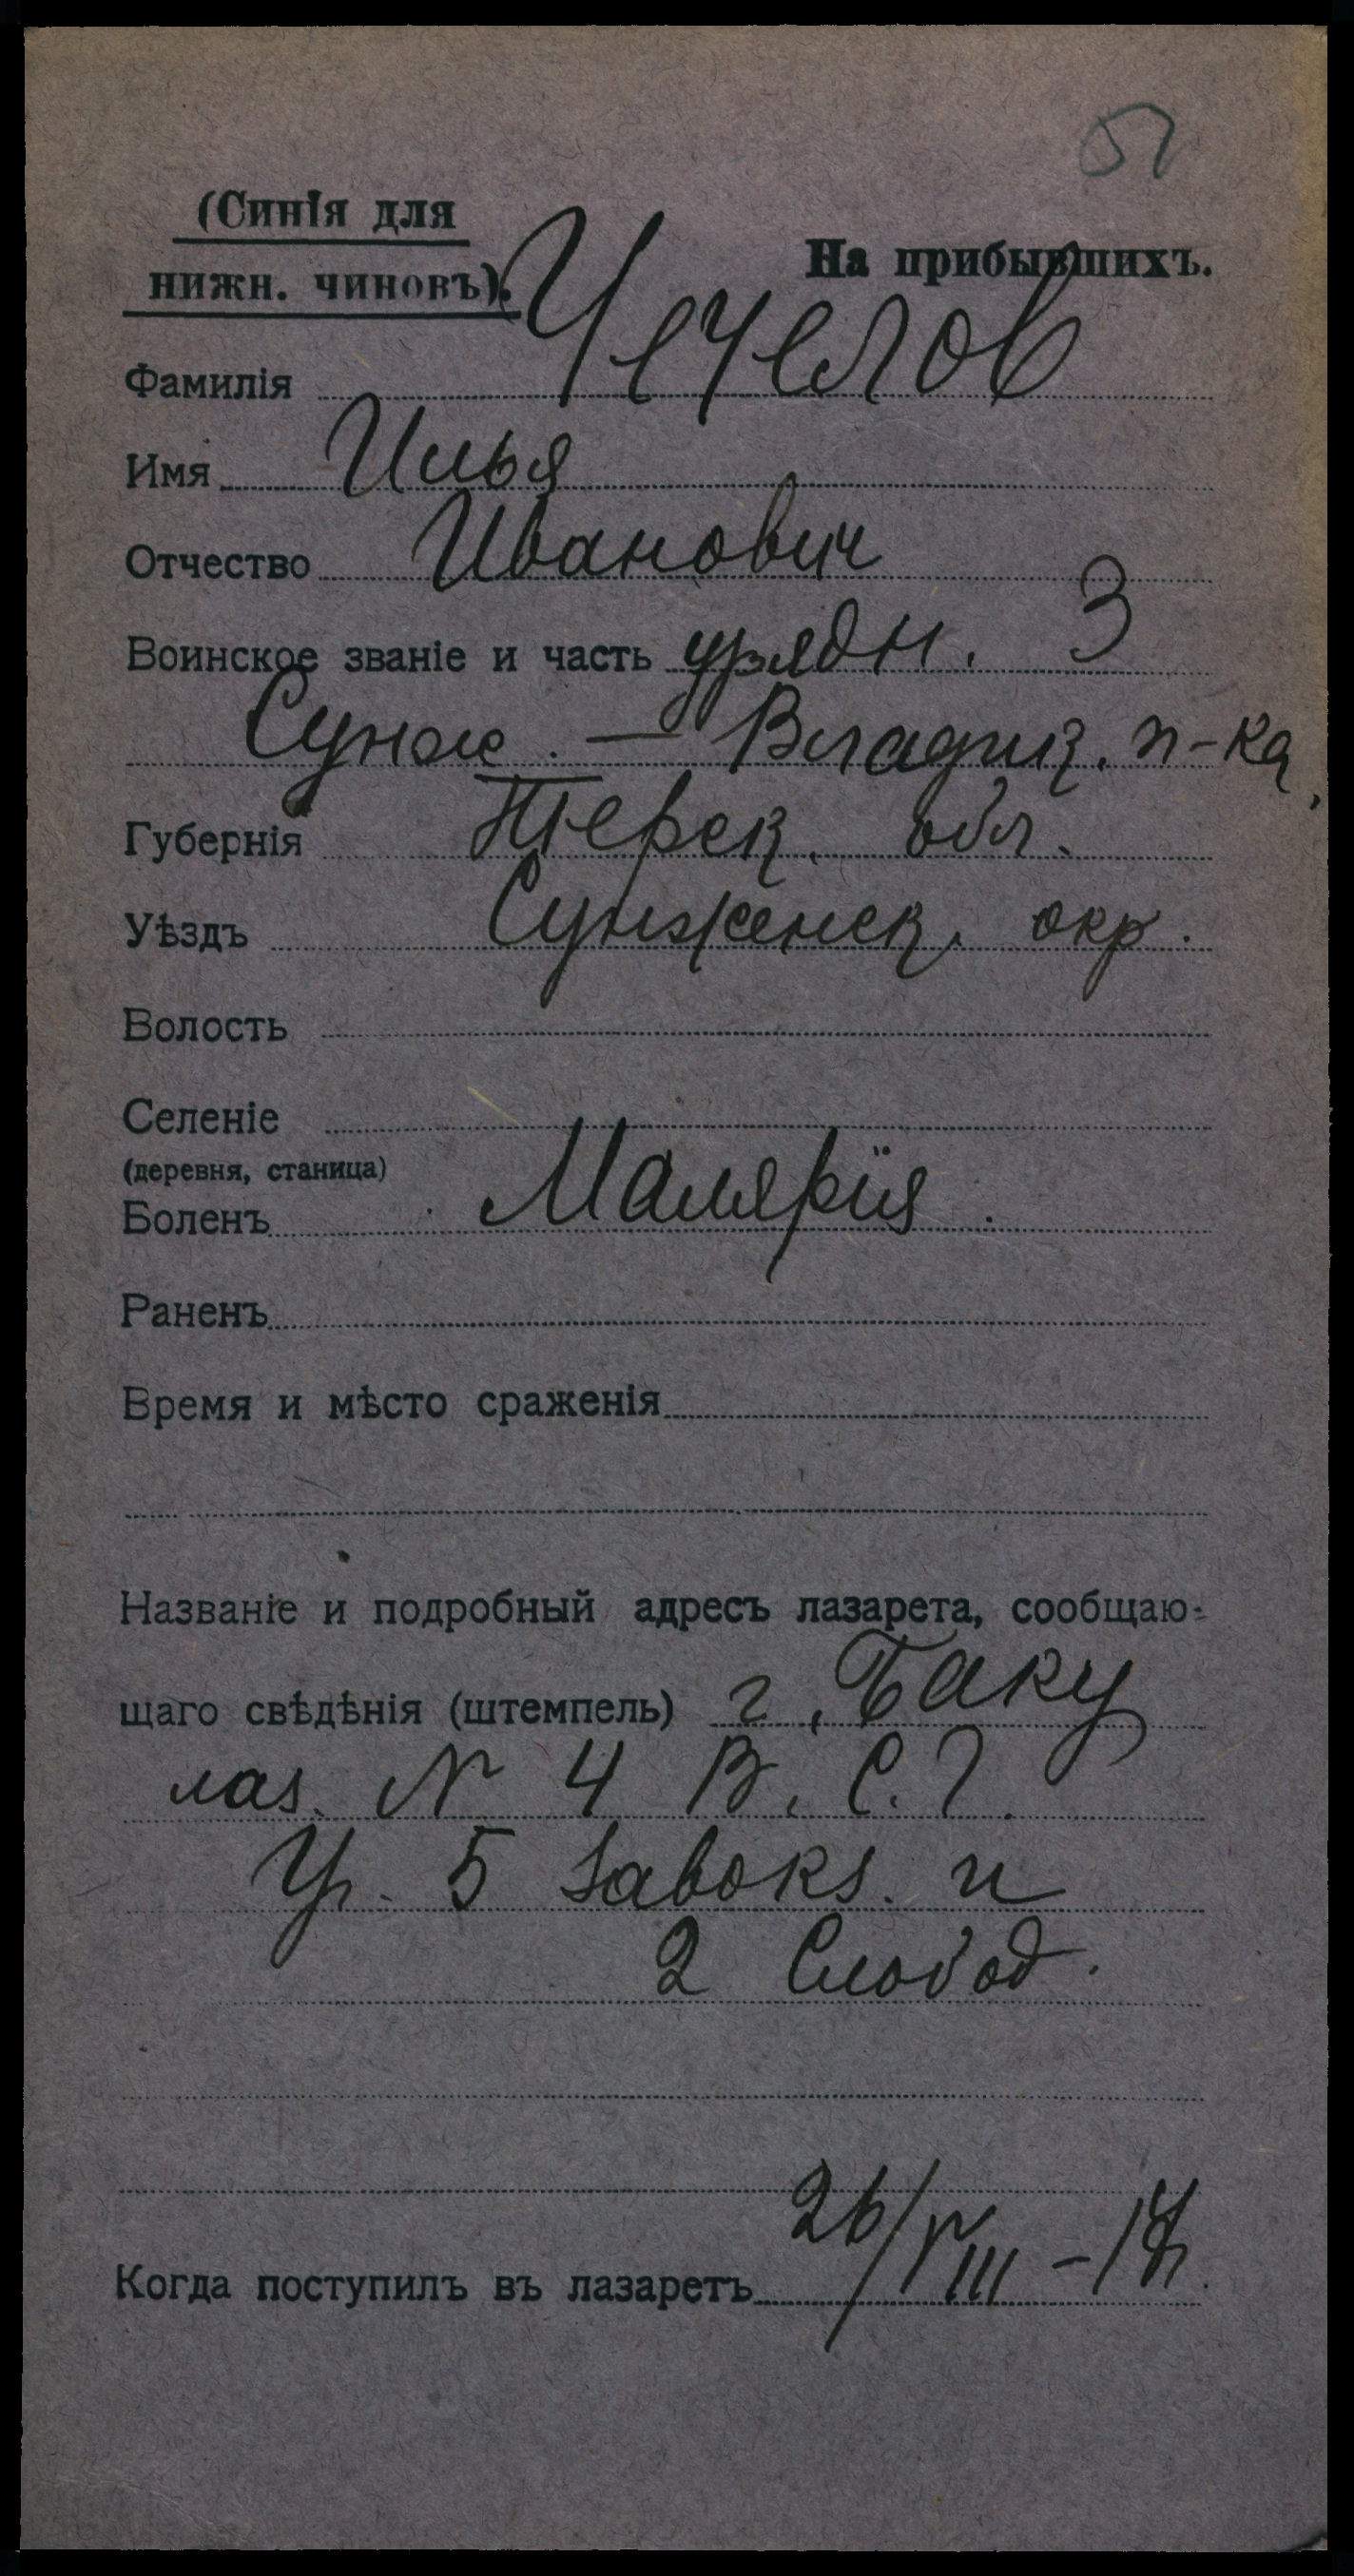 (Синія для
нижн. чиновъ).
На прибывшихъ.
Фамилія Чечелов
Имя Илья
Отчество Иванович
Воинское званіе и часть урядн. 3
Сунж. - Владик. п-ка,
Губернія Терск. обл.
Уѣздъ Сунженск. окр.
Волость
Селеніе
(деревня, станица)
Боленъ Малярія.
Раненъ
Время и мѣсто сраженія
Названіе и подробный адресъ лазарета, сообщаю-
щаго свѣдѣнія (штемпель) г. Баку
лаз. N 4 В. С. Г.
Уг. 5 Завокз. и
2 Слобод.
Когда поступилъ въ лазаретъ 26/VIII-17